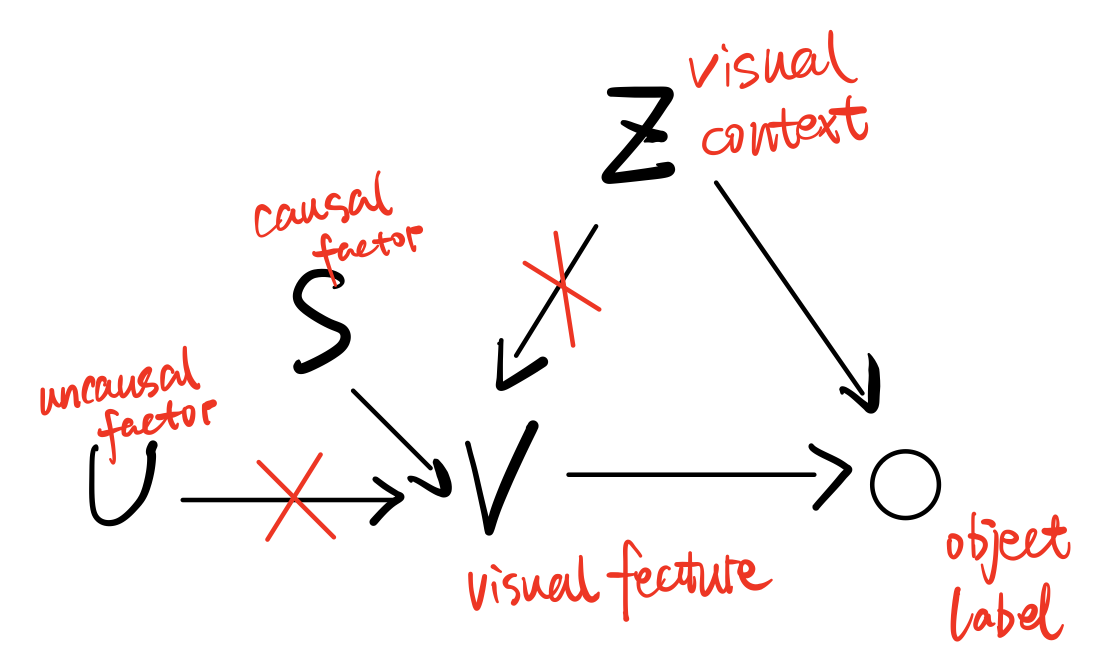 visual
context
Z
causal
factor
S
uncausal
factor
U
V
visual feature
O
object
label